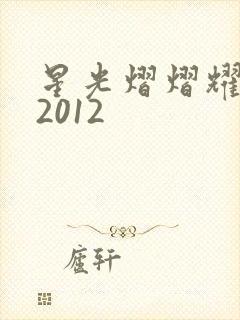 星光熠熠耀
2012
庐轩